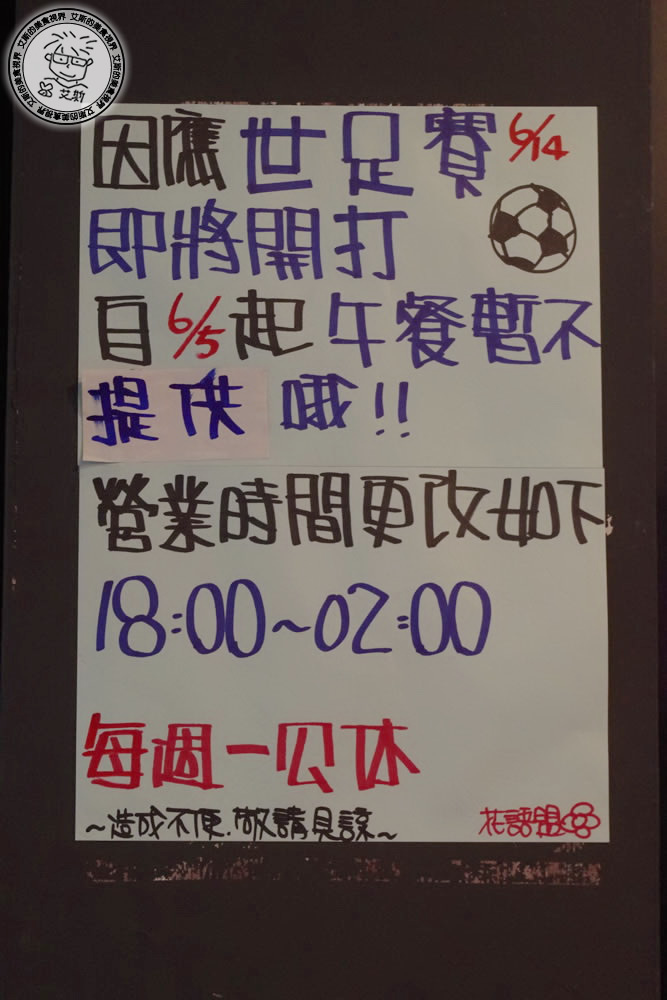 艾斯的美食視界 艾斯的美食視界 艾斯的美食視界 艾斯的美食視界
艾斯
因應世足賽6/14
即將開打
自6/5起午餐暫不
提供哦!!
營業時間更改如下
18:00~02:00
每週一公休
~造成不便.敬請見諒~
花語盟